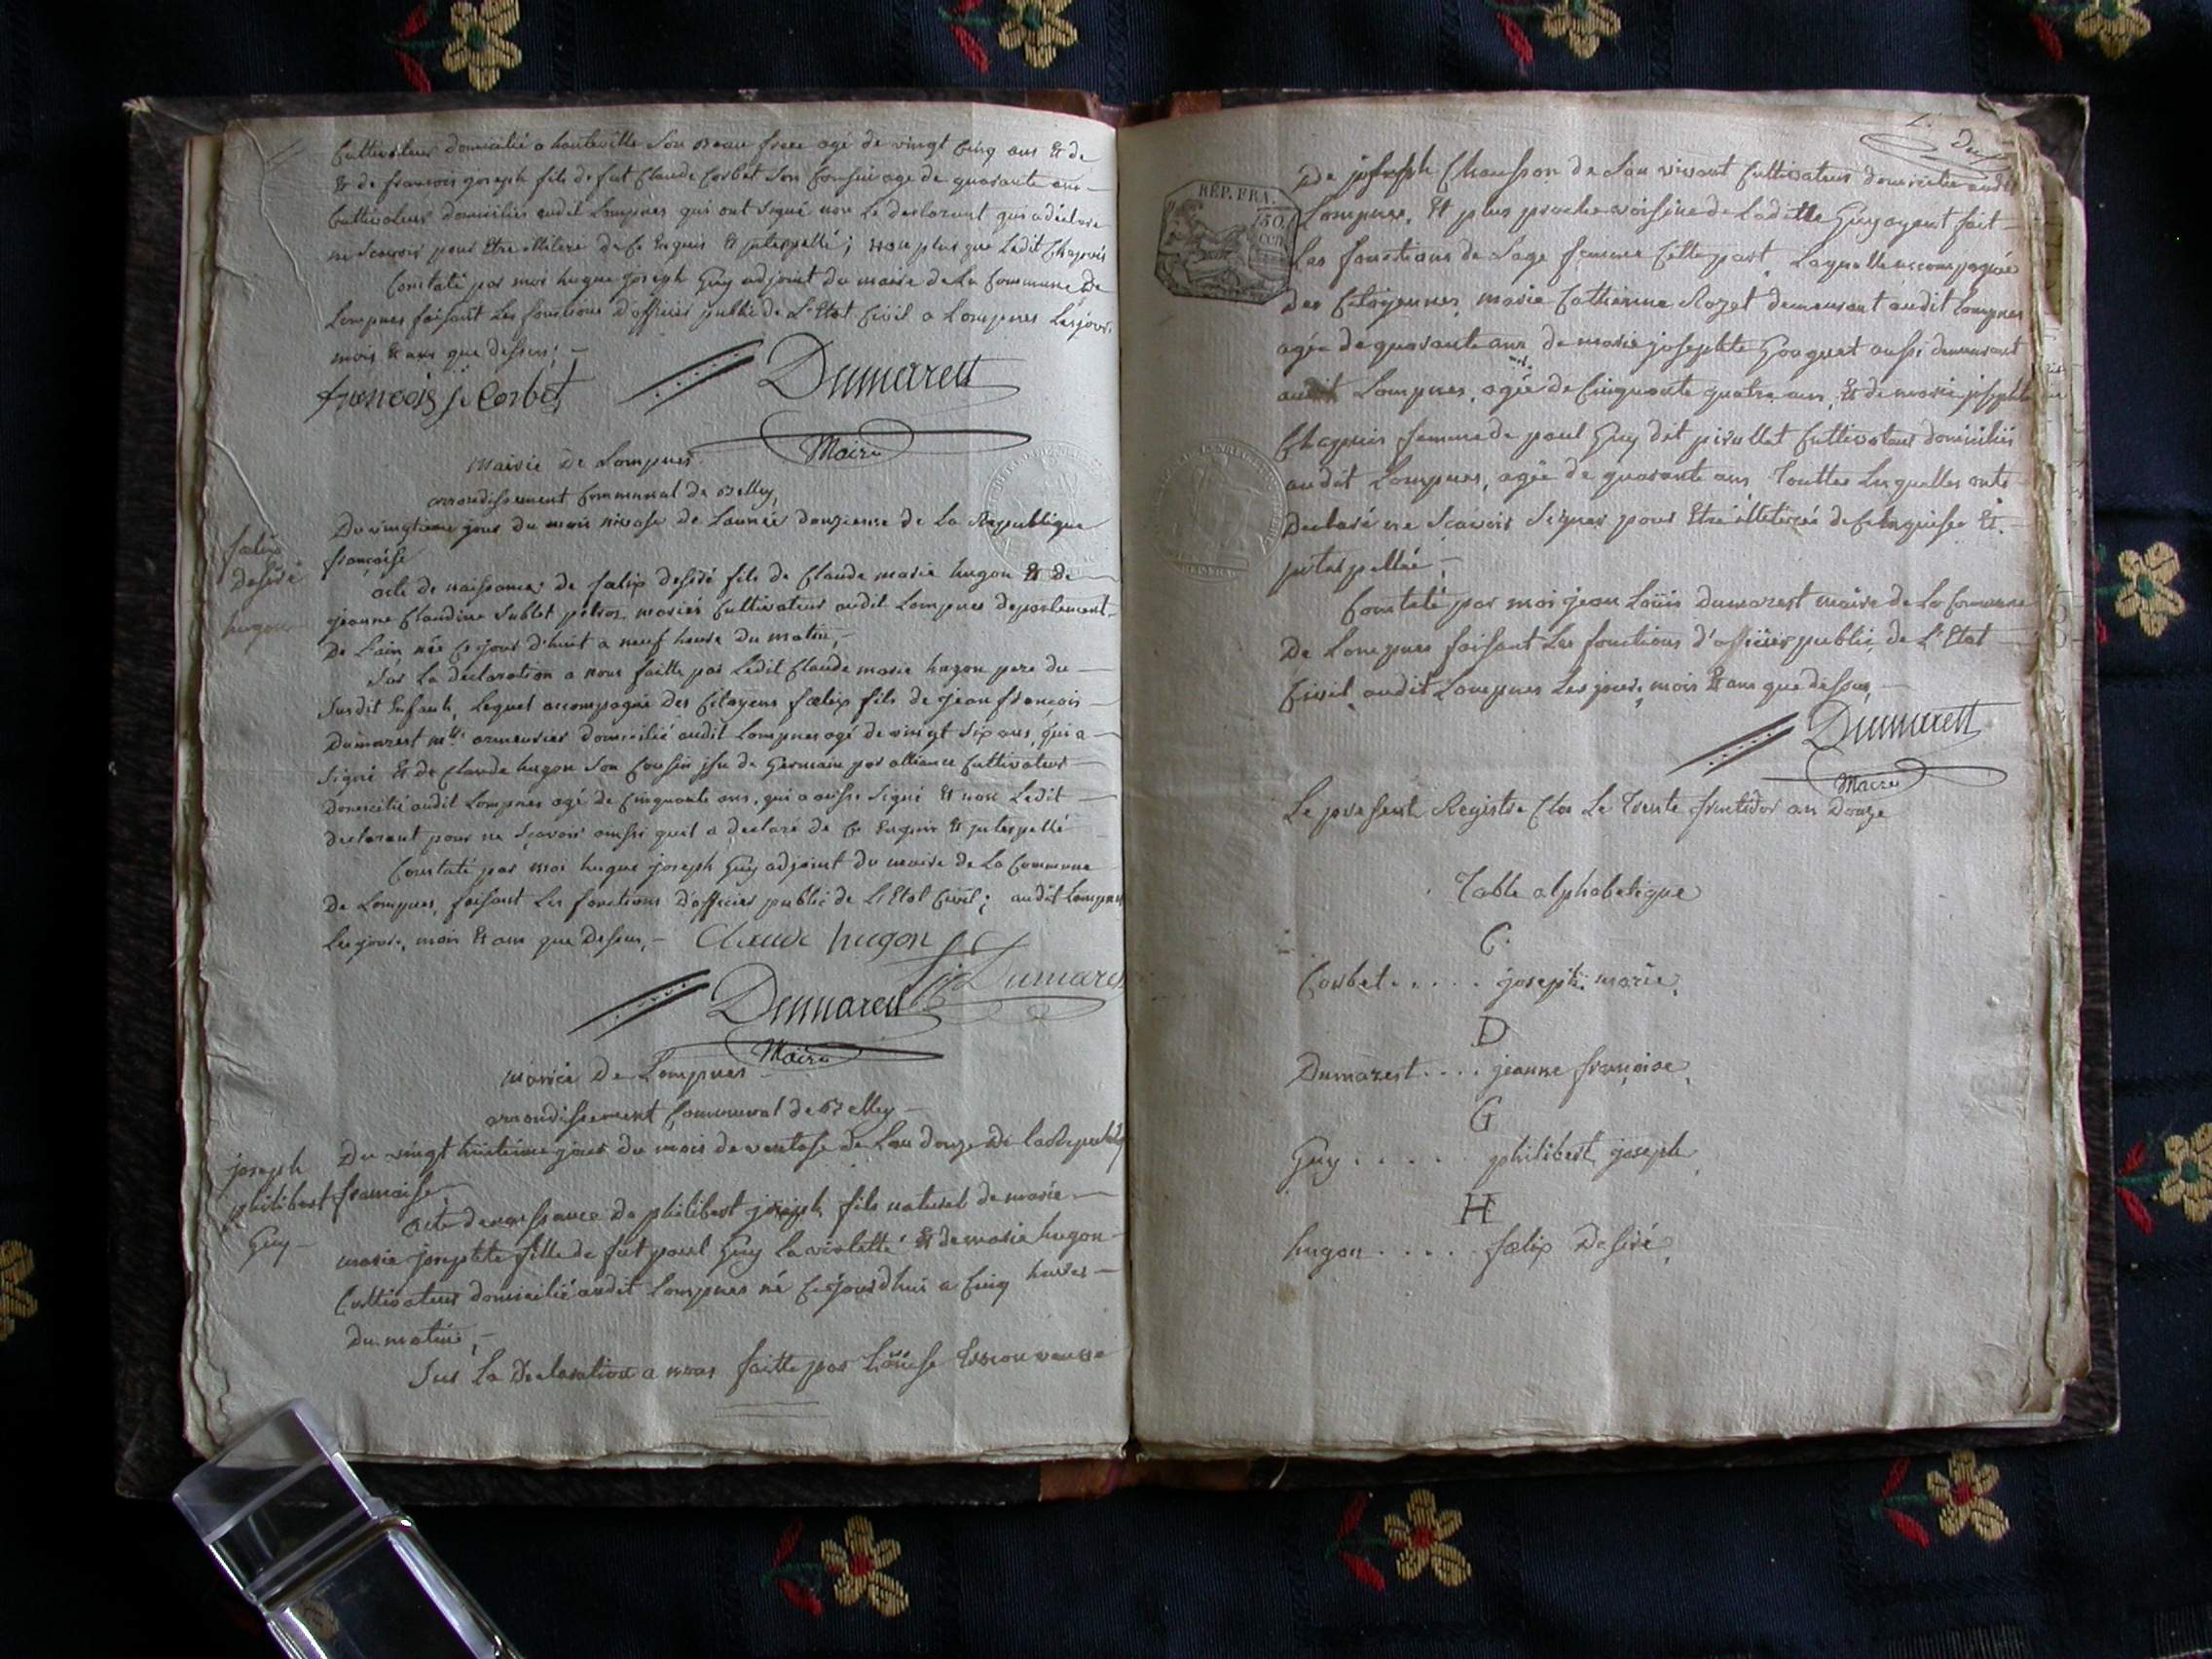 Cultivateur domicilié a hauteville Son Beau frere agé de vingt Cinq ans & de
& de francois joseph fils de fut Claude Corbet Son Cousin age de quarante ans
Cultivateur domiciliés audit Lompnes qui ont Signé non Le declarant qui a déclaré
ne Scavoir pour Etre illiteré de Ce Enquis & jnterpellé; non plus que Ledit Chapuis
Constaté par moi hugue joseph Guy adjoint du maire de La Commune De
Lompnes faisant Les fonctions d'officier public de L'Etat Civil a Lompnes Les jour,
mois & ans que dessus; —
francois j. Corbet
Dumarest
Maire
Mairie De Lompnes
arrondissement Communal de Belley,
Du vingtieme jour du mois nivose de L'année douzieme de La Republique
françoise
fœlix
Desiré
hugon
acte de naissance de fœlix desiré fils de Claude marie hugon & de
jeanne Claudine Sublet mariés Cultivateur audit Lompnes departement
De L'ain née Cejour d'huit a neuf heure du matin, —
Sur La declaration a nous faitte par Ledit Claude marie hugon pere du
Susdit Enfant, Lequel accompagné des Citoyens fœlix fils de jean françois
Dumarest armeurier domicilié audit Lompnes agé de vingt Six ans, qui a
Signé & de Claude hugon Son Cousin jsu de Germain par alliance Cultivateur
Domicilié audit Lompnes agé de Cinquante ans, qui a aussi Signé & non Ledit
declarant pour ne Sçavoir ainssi quil a declaré de Ce Enquis & jnterpellé
Constaté par moi hugue joseph Guy adjoint du maire de La Commune
De Lompnes, faisant Les fonctions d'officier public de L'Etat Civil; audit Lompnes
Les jour, mois & ans que Dessus, —
Claude hugon
Dumarest
Dumarest
Maire
Mairie De Lompnes
arrondissement Communal de Belley —
Du vingt huitieme jour du mois de ventose de L'an douze De la Republiq
françoise
joseph
philibert
Guy
acte de naissance De philibert joseph fils naturel de marie
marie josephte fille de fut paul Guy La violette & de marie hugon
Cultivateur domicilié audit Lompnes né Cejourdhui a Cinq heures
Du matin, —
Sur La Declaration a nous faitte par Loüise
Deux
RÉP. FRA.
50
cen
De joseph Chausson de Son vivant Cultivateur domicilié audit
Lompnes, & plus proche voisine de Ladette Guy ayent fait
Les fonctions de Sage femme Cette part, Laquelle accompagnée
des Citoyennes, marie Catherine Rozet demeurant audit Lompnes
agée de quarante ans, de marie josephte Gouguet aussi demeurant
audit Lompnes, agée de Cinquante quatre ans, & de marie josephte
Chapuis femme de paul Guy dit pirollet Cultivateur domicilié
audit Lompnes, agée de quarante ans, Touttes Lesquelles onts
Declaré ne Scavoir Signer pour Etre illiterée de Ce Enquise &
jnterpellée, —
Constaté par moi jean Loüis Dumarest maire de La Commune
De Lompnes faisant Les fonctions d'officier public de L'Etat
Civil, audit Lompnes Les jour, mois & ans que dessus, —
Dumarest
Maire
Le present Registre Clos Le Trente fructidor an Douze
Table alphabetique
C.
Corbet..... joseph marie,
D
Dumarest.... jeanne françoise,
G
Guy..... philibert joseph,
H
hugon..... fœlix Desiré,